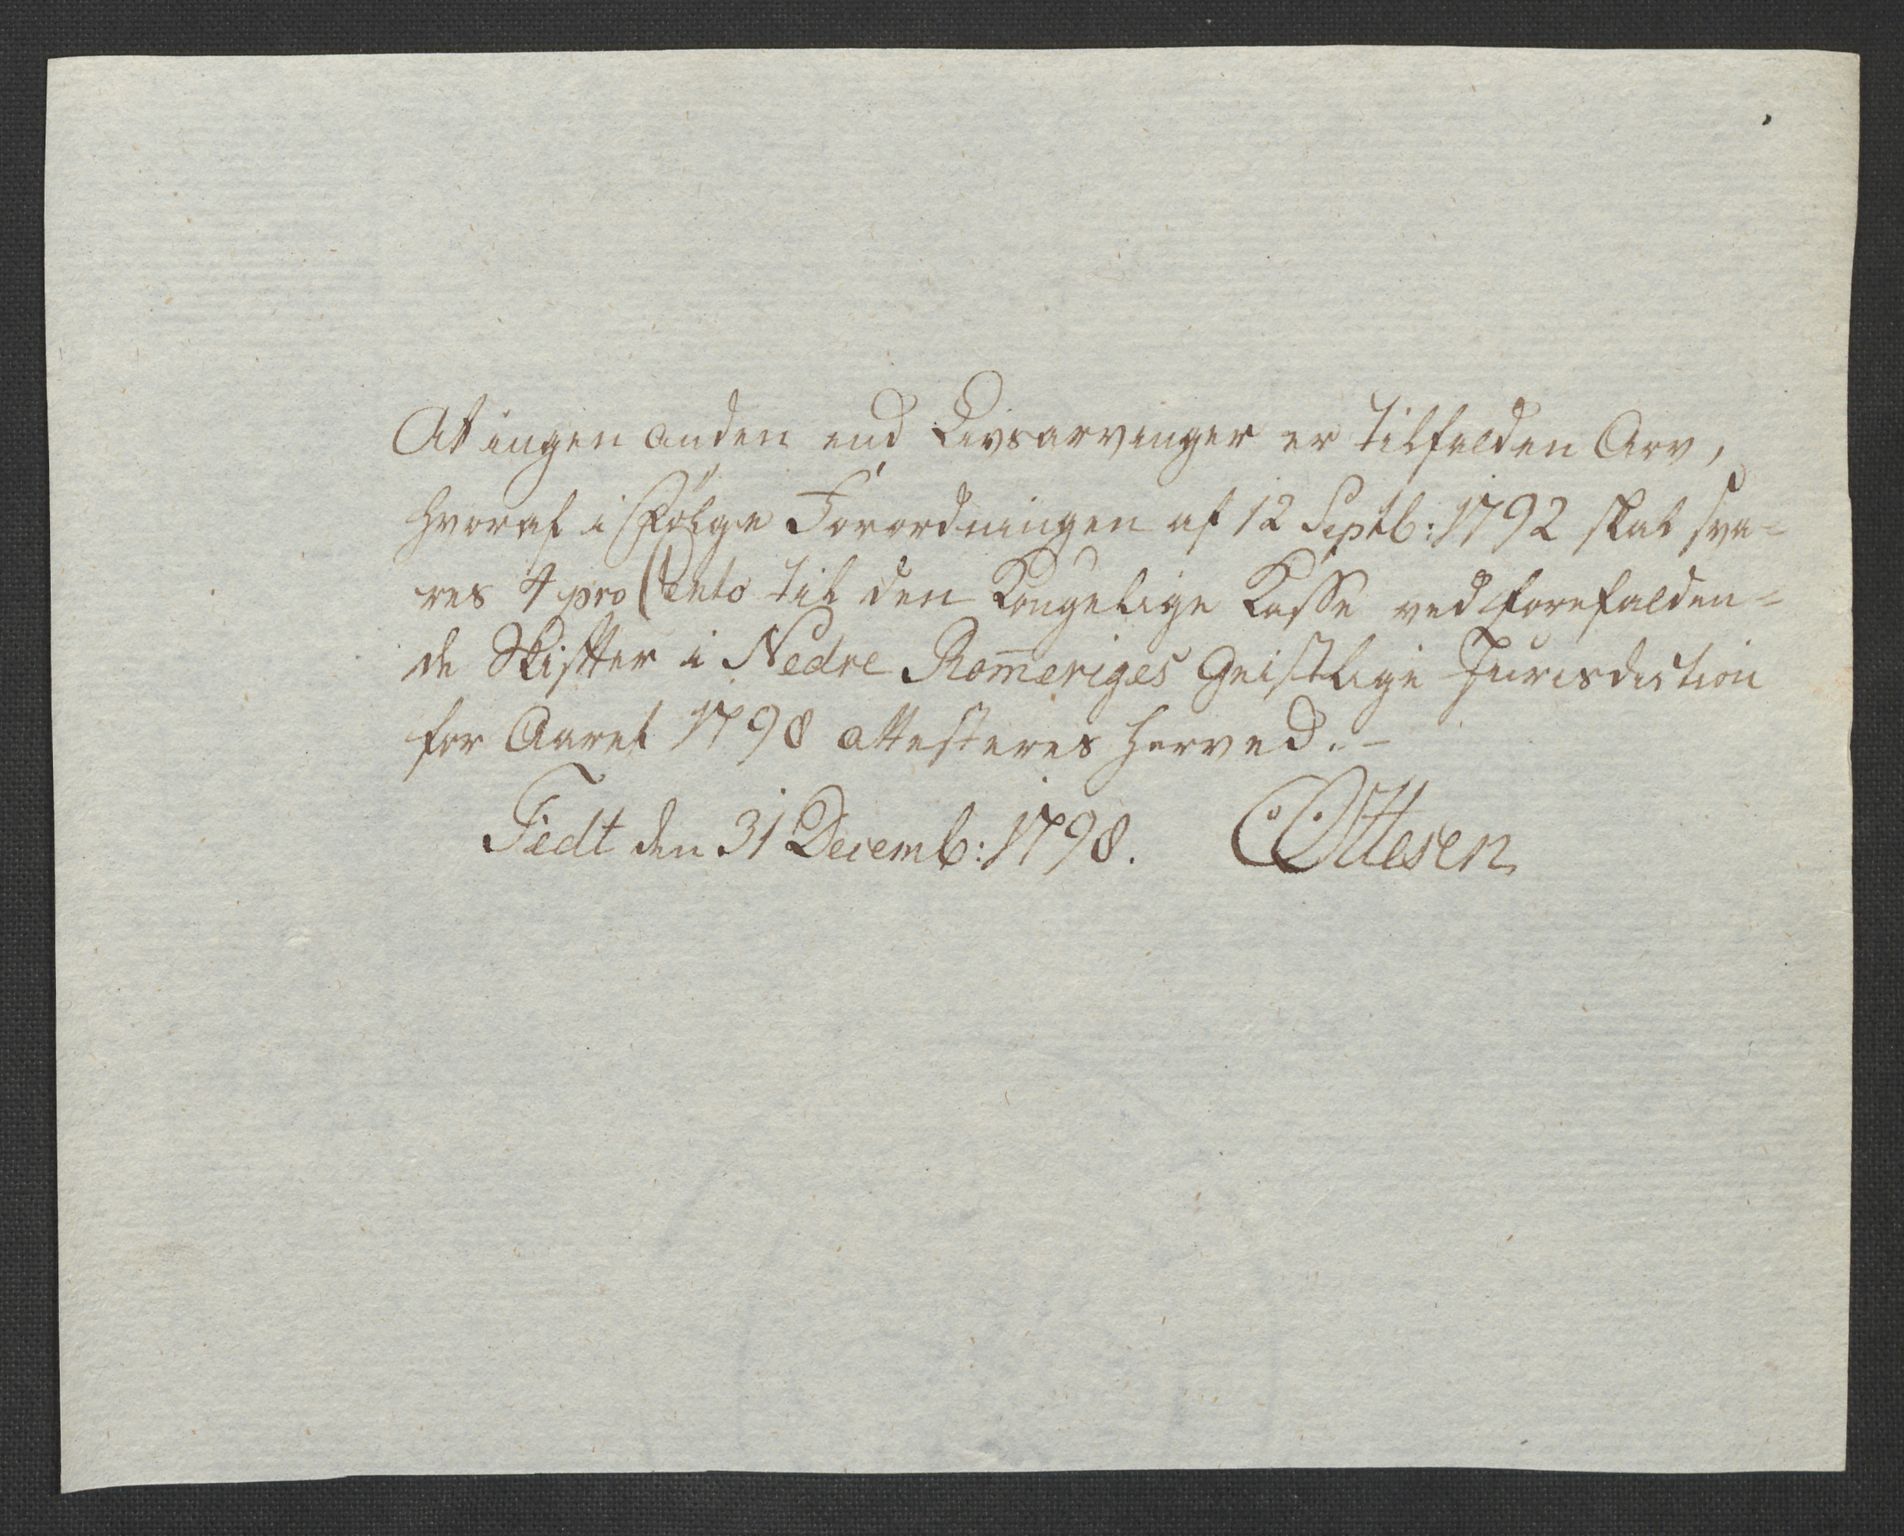 At ingen anden end Livsarvinger er tilfalden Arv,
hvoraf i Følge Forordningen af 12 Septb: 1792 skal sva-
res 4 pro Cento til den Kongelige Kasse ved forefalden-
de Skifter i Nedre Rom̅eriges Geistlige Jurisdiction
for Aaret 1798 attesteres herved. –
Fedt den 31 Decemb: 1798. COttesen